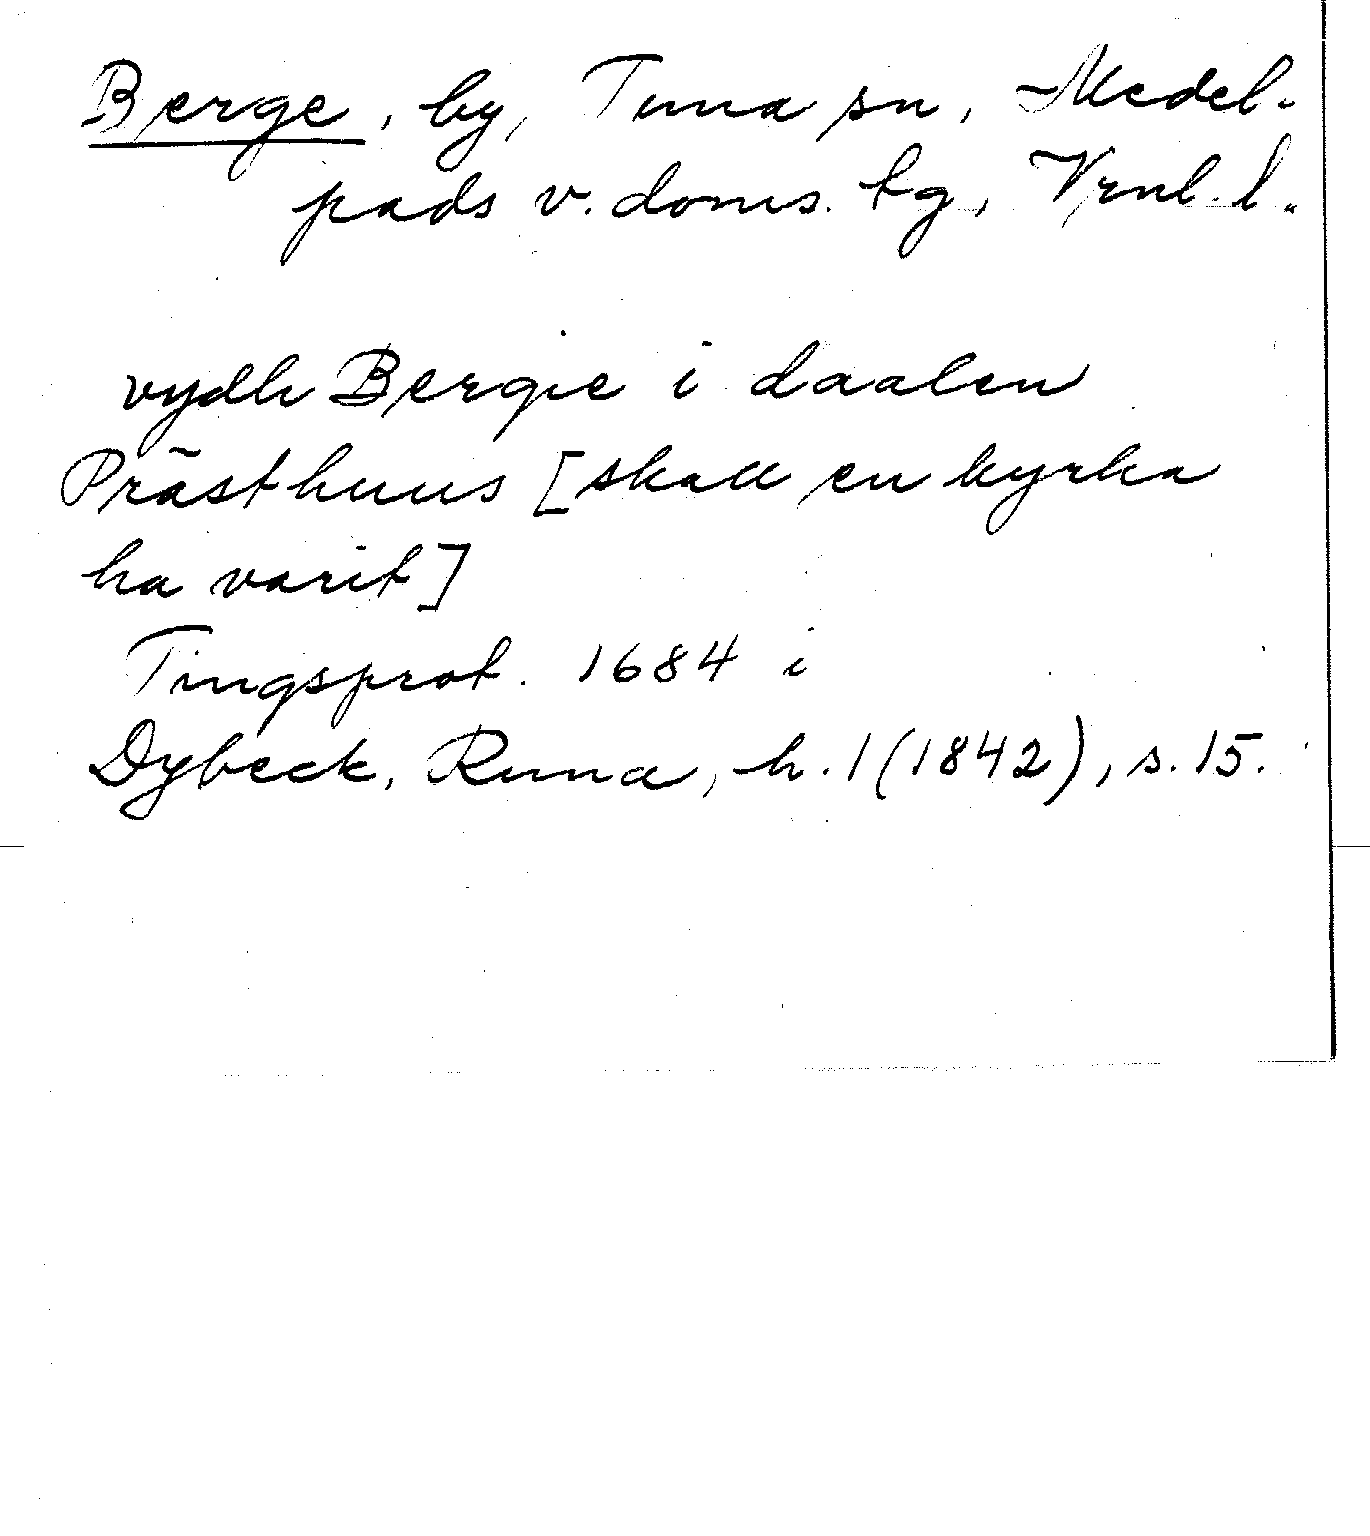 Berge, by, Tuna sn, Medel-
pads v. doms. tg, Vrnl. l.
vydh Bergie i daalen
Prästhuus [skall en kyrka
ha varit]
Tingsprot. 1684 i
Dybeck, Runa, h. 1 (1842), s. 15.